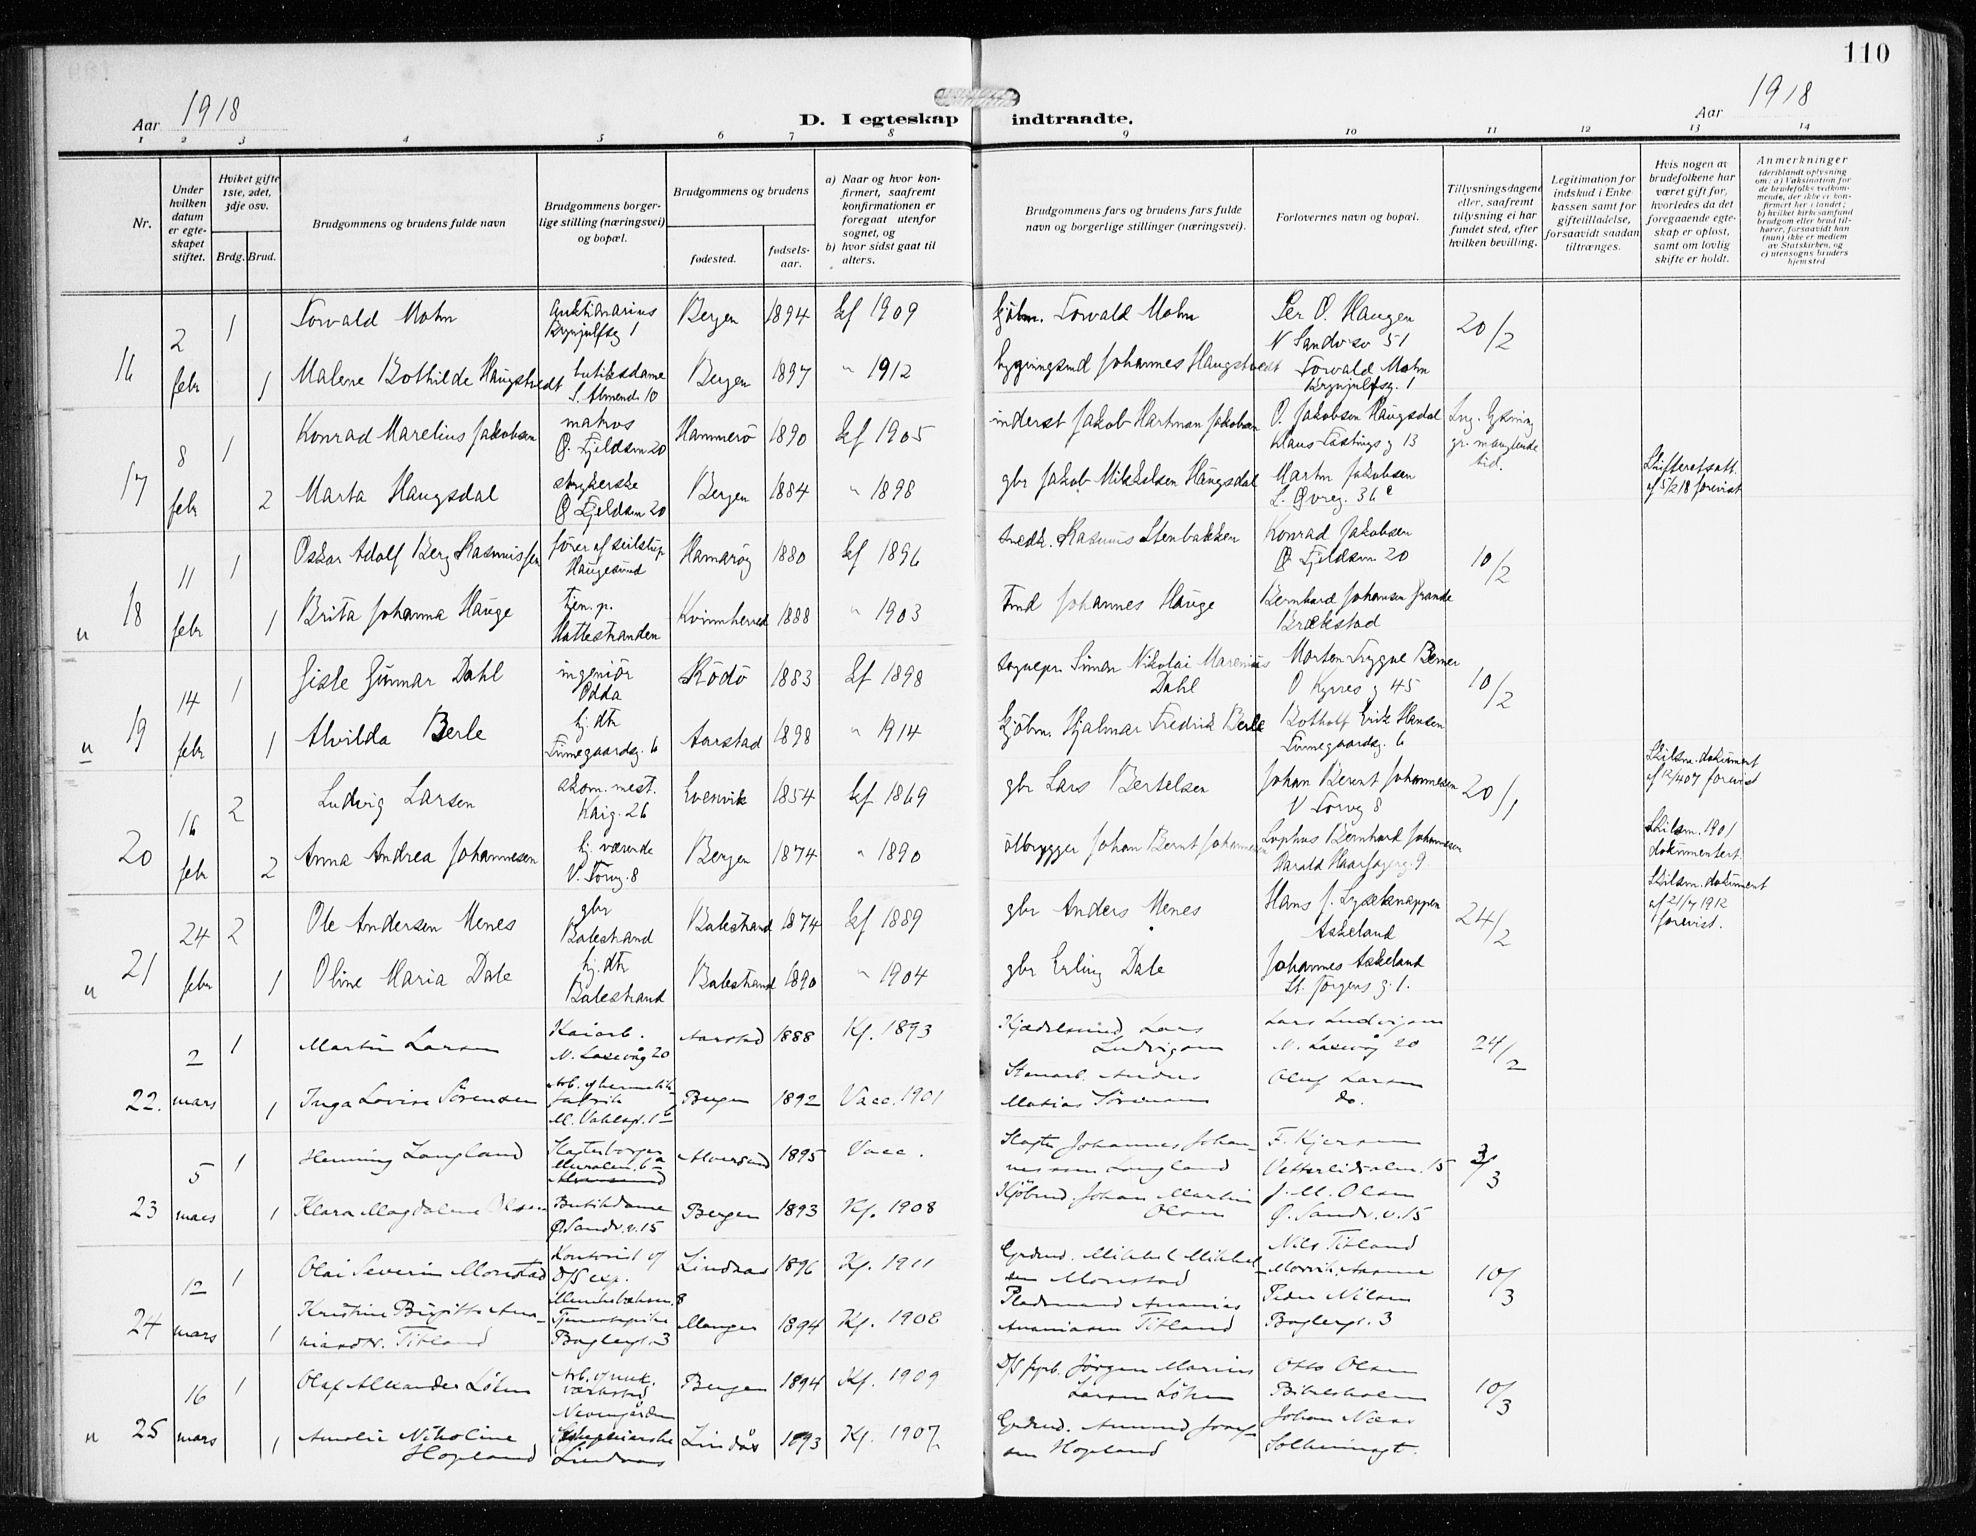 110
Aar 1918
D. I egteskap indtraadte.
Aar 1918
1 2 3 4 5 6 7 8 9 10 11 12 13 14
Nr.
Under hvilken datum er egteskapet stiftet.
Hviket gifte 1ste, 2det, 3dje osv.
Brdg. Brud.
Brudgommens og brudens fulde navn
Brudgommens borgerlige stilling (næringsvei) og bopæl.
Brudgommens og brudens
fødested.
fødselsaar.
a) Naar og hvor konfirmert, saafremt konfirmationen er foregaat utenfor sognet, og
b) hvor sidst gaat til alters.
Brudgommens fars og brudens fars fulde navn og borgerlige stillinger (næringsvei).
Forlovernes navn og bopæl.
Tillysningsdagene eller, saafremt tillysning ei har fundet sted, efter hvilken bevilling.
Legitimation for indskud i Enkekassen samt for giftetilladelse, forsaavidt saadan tiltrænges.
Hvis nogen av brudefolkene har været gift for, hvorledes da det foregaaende egteskap er opløst, samt om lovlig skifte er holdt.
Anmerkninger
(deriblandt oplysning om: a) Vaksination for de brudefolks vedkommende, der ikke er konfirmert her i landet; b) hvilket kirkesamfund brudgom eller brud tilhører, forsaavidt han (hun) ikke er medlem av Statskirken, og c) utensogns bruders hjemsted
16 2 febr
1 Torvald Mohn
auktionarius
Brynjulfsg 1
Bergen 1894 kf 1909
kjøbm. Torvald Mohn
Per O. Haugen
N Sandvsv 51
20/2
1 Malene Bothilde Haugstvedt
butiksdame
S. Almend 10
Bergen 1897 " 1912
bygningssnd Johannes Haugstvedt
Torvald Mohn
Brynjulfsg. 1
17 8 febr
1 Konrad Marelius Jakobsen
matros
Ø. Fjeldsm 20
Hammerö 1890 kf 1905
inderst Jakob Hartman Jakobsen
O. Jakobsen Haugsdal
Klaus Fastings g 13
Ing. lysning
gr. manglende
tid.
2 Marta Haugsdal
strykerske
Ø Fjeldsm 20
Bergen 1884 " 1898
gbr Jakob Mikkelsen Haugsdal
Martin Jakobsen
L. Øvreg. 36 c
Skifteretsatt.
af 5/2 18 forevist
18 11 febr
1 Oskar Adolf Berg Rasmussen
fører af seilskip
Haugesund
Hamarøy 1880 kf 1896
snedk. Rasmus Stenbakken
Konrad Jakobsen
Ø. Fjeldsm 20
10/2
" 1 Brita Johanna Hauge
tjen. p.
Hattestranden
Kvinnherred 1888 " 1903
Johannes Hauge
Bernhard Johansen Grande
Brækstad
19 14 febr
1 Gisle Gunnar Dahl
ingeniör
Odda
Rödö 1883 kf 1898
sognepr. Simon Nikolai Marenius
Dahl
Morten Trygve Berner
O Kyrres g 45
10/2
" 1 Alvilda Berle
hj. dtr
Finnegaardsg. 6
Aarstad 1898 " 1914
kjöbm. Hjalmar Fredrik Berle
Botholf Erik Hansen
Finnegaardsg. 6
20 16 febr
2 Ludvig Larsen
skom. mest.
Kaig. 26
Evenvik 1854 kf 1869
gbr Lars Bertelsen
Johan Bernt Johannesen
V Torvg 8
20/1
Skilsm. dokument
af 12/4 07 forevist
2 Anna Andrea Johannesen
hj. værende
V. Torvg. 8
Bergen 1874 " 1890
ölbrygger Johan Bernt Johannesen
Sophus Bernhard Johannesen
Harald Haarfagersg. 9
Skilsm. 1901
dokumentert.
21 24 febr
2 Ole Andersen Menes
gbr
Balestrand
Balestrand 1874 kf 1889
gbr Anders Menes
Hans J. Lyseknappen
Askeland
24/2
Skilsm. dokument
af 21/7 1912
forevist.
" 1 Oline Maria Dale
hj. dtr
Balestrand
Balestrand 1890 " 1904
gbr Erling Dale
Johannes Askeland
St. Jørgens g. 1.
22. 2 mars
1 Martin Larsen
Kaiarb.
N. Laxevåg 20
Aarstad 1888 Kf. 1893
Kjædresmed Lars
Ludvigsen
Lars Ludvigsen
N. Laxevåg 20
24/2
1 Inga Lovise Sörensen
Arb. hermetik-
fabrik
Bergen 1892 Vacc. 1901
Stenarb. Andreas
Matias Sörensen
Oluf Larsen
do.
23 5 mars
1 Henning Langland
Alversund 1895 Vacc.
Johannes Johan-
nessen Langland
F. Kjersem
Vetterlidsalm. 15
3/3
1 Klara Magdalene Olsen
Butikdame
Ø. Sandv. v. 15
Bergen 1893 Kf. 1908
Johan Martin
Olsen
J. M. Olsen
Ø. Sandv. v. 15
24 12 mars
1 Olai Severin Monstad
Kontorist
D/S exp.
Lindaas 1896 Kf. 1911
Grdmd. Mikkel Mikkel-
sen Monstad
Nils Titland
10/3
1 Kristine Birgitte Ana-
niasdtr. Titland
Baglergt. 3
Manger 1894 Kf. 1908
Pladsmand Ananias
Ananiassen Titland
Peder Nilsen
Baglergt. 3
25 16 mars
1 Olaf Alexander Löhn
Arb. mek.
værksted
Bergen 1894 Kf. 1909
D/S fyrb. Jörgen Marius
Larsen Löhn
Otto Olsen
10/3
" 1 Amalie Nikoline
Hopland
Lindaas
Lindås 1893 Kf. 1907
Grdmd. Amund Josef-
sen Hopland
Johan Næss
Solheimsgt.